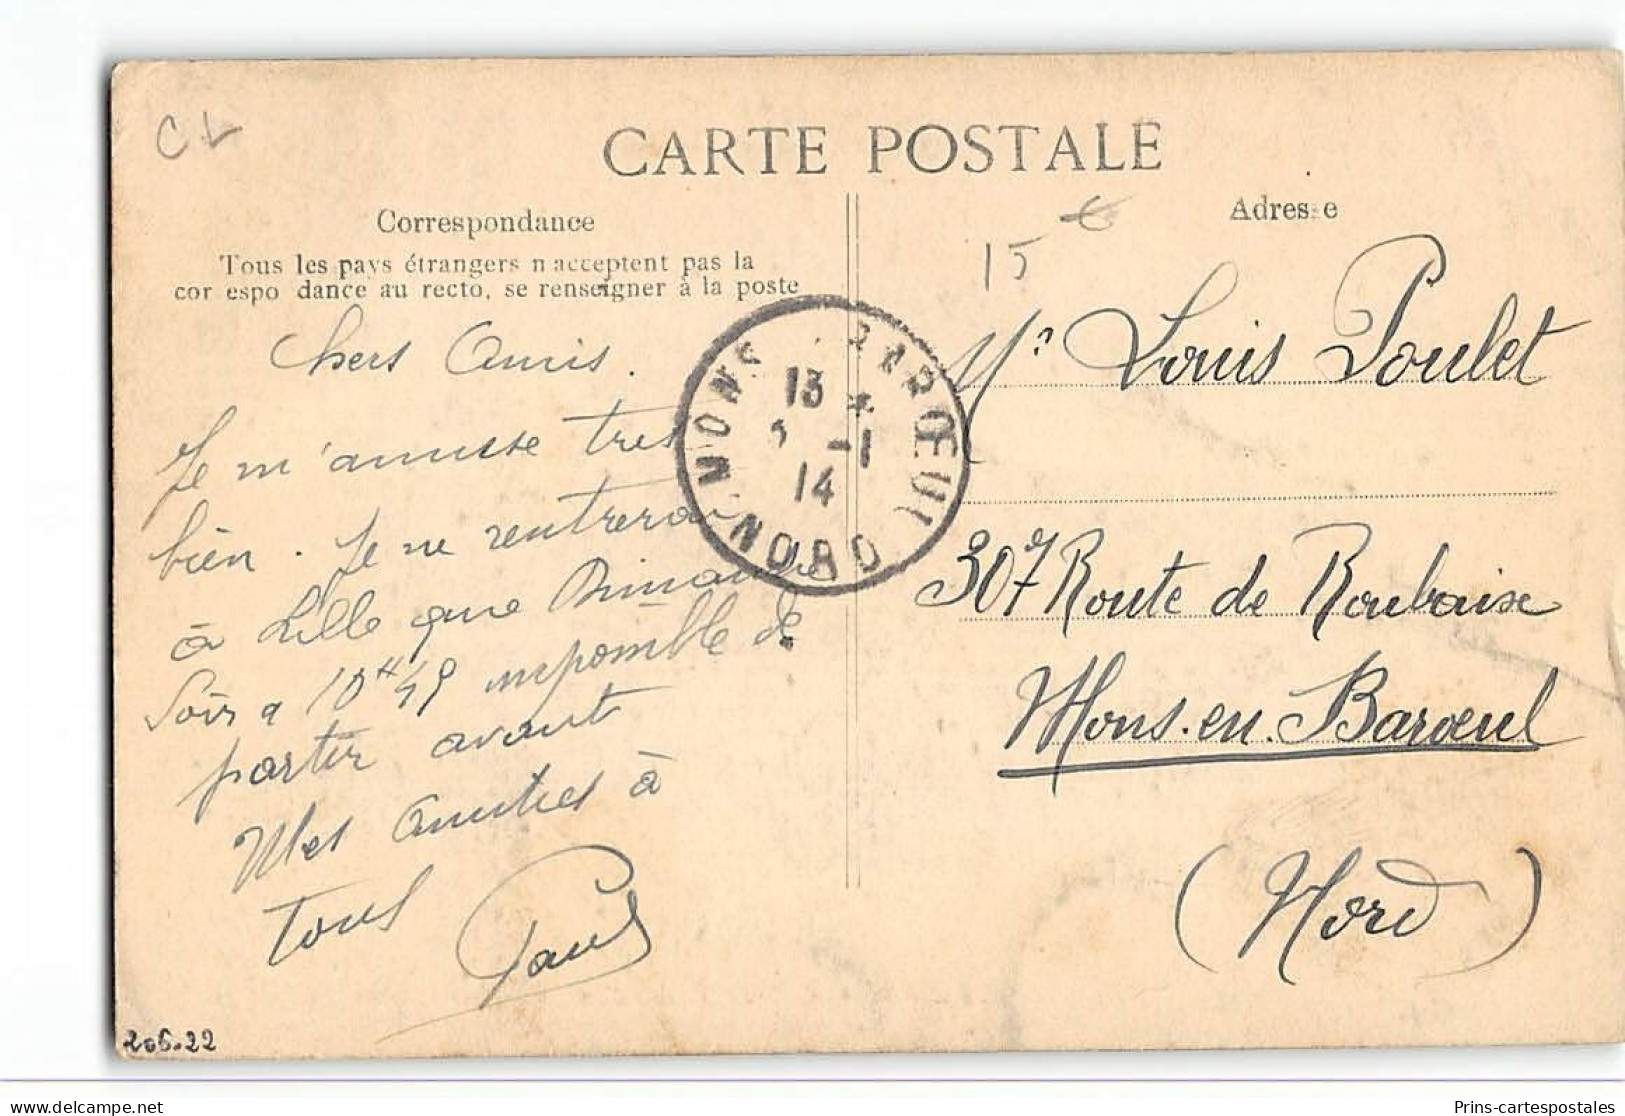 CL
CARTE POSTALE
Correspondance
Tous les pays étrangers n acceptent pas la
cor espo dance au recto, se renseigner à la poste
Chers Amis.
Je m'amuse tres
bien. Je ne rentrerai
à Lille que Dimanche
Soir a 10H49 impossible de
partir avant
Mes Amities à
tous Paul
MONS BARŒUL
13 *
-1
14
NORD
Adresse
15 €
Mr Louis Poulet
307 Route de Roubaix
Mons-en-Barœul
(Nord)
206.22
delcampe.net
Prins-cartespostales